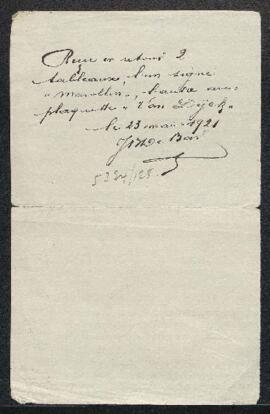 Reçu en retour 2
tableaux, l'un signé
"Marellin", l'autre avec
plaquette "Van Dijck"
le 23 mai 1921
de
5234/128